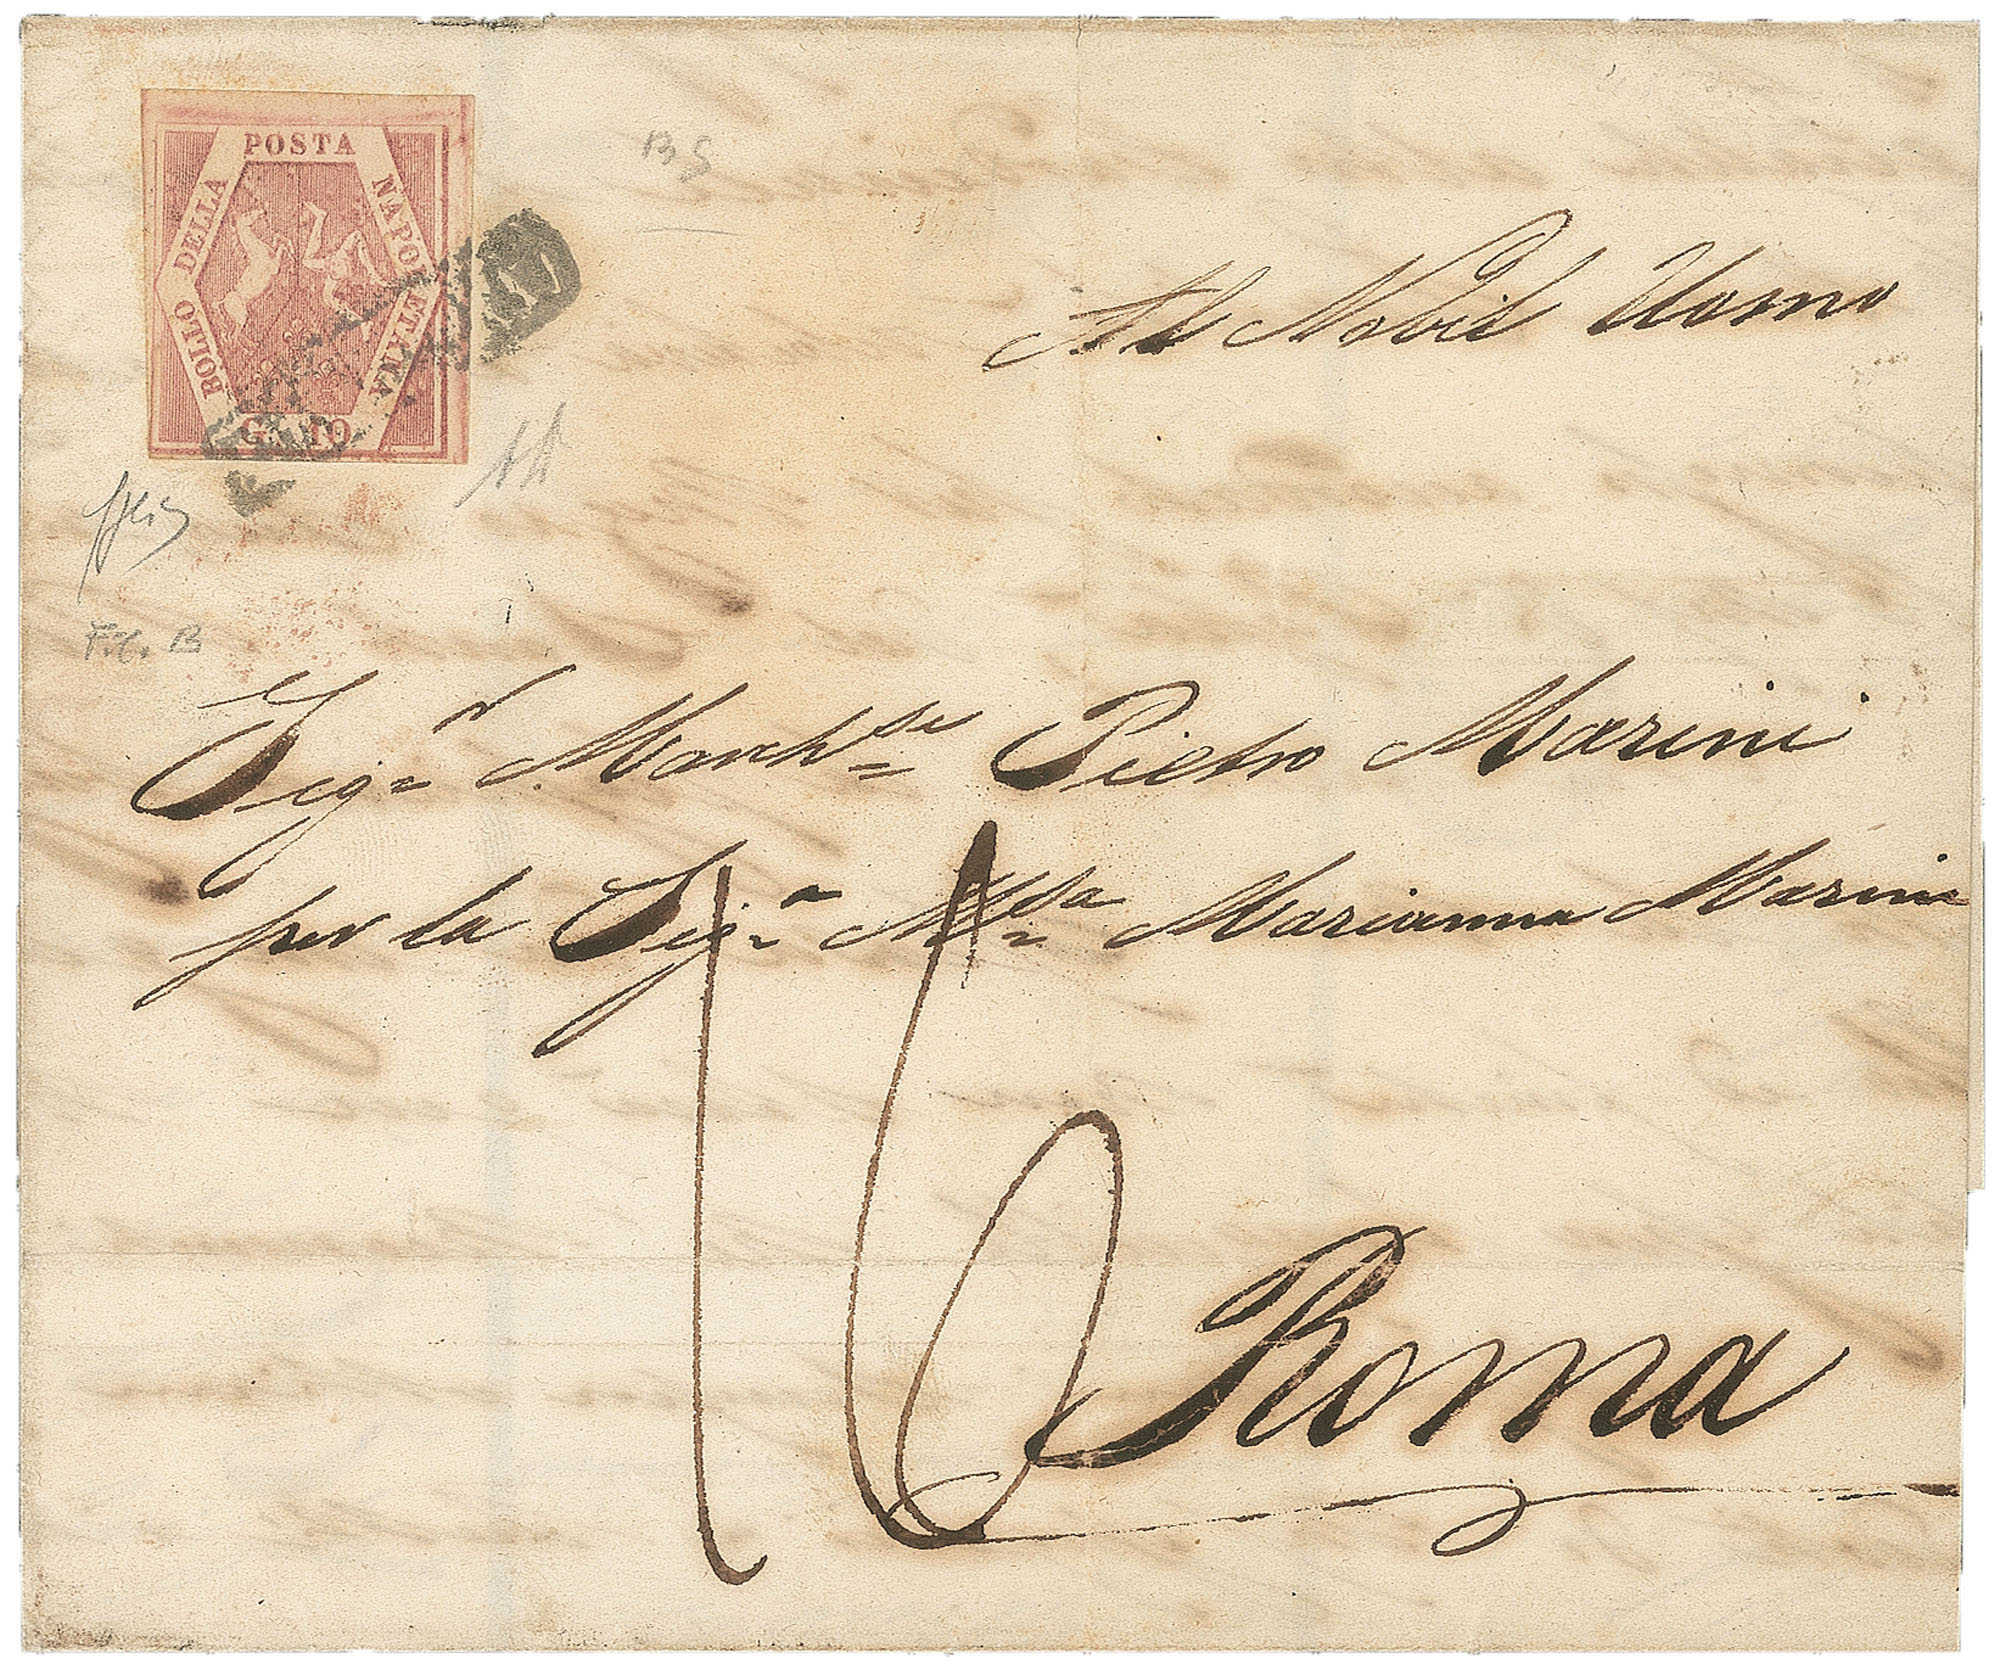 POSTA
BOLLO DELLA
NAPOLETANA
G. 10
B S
Al Nobil Uomo
Sig.r March.se Pietro Marini
per la Sig.a M.sa Marianna Marini
16
Roma